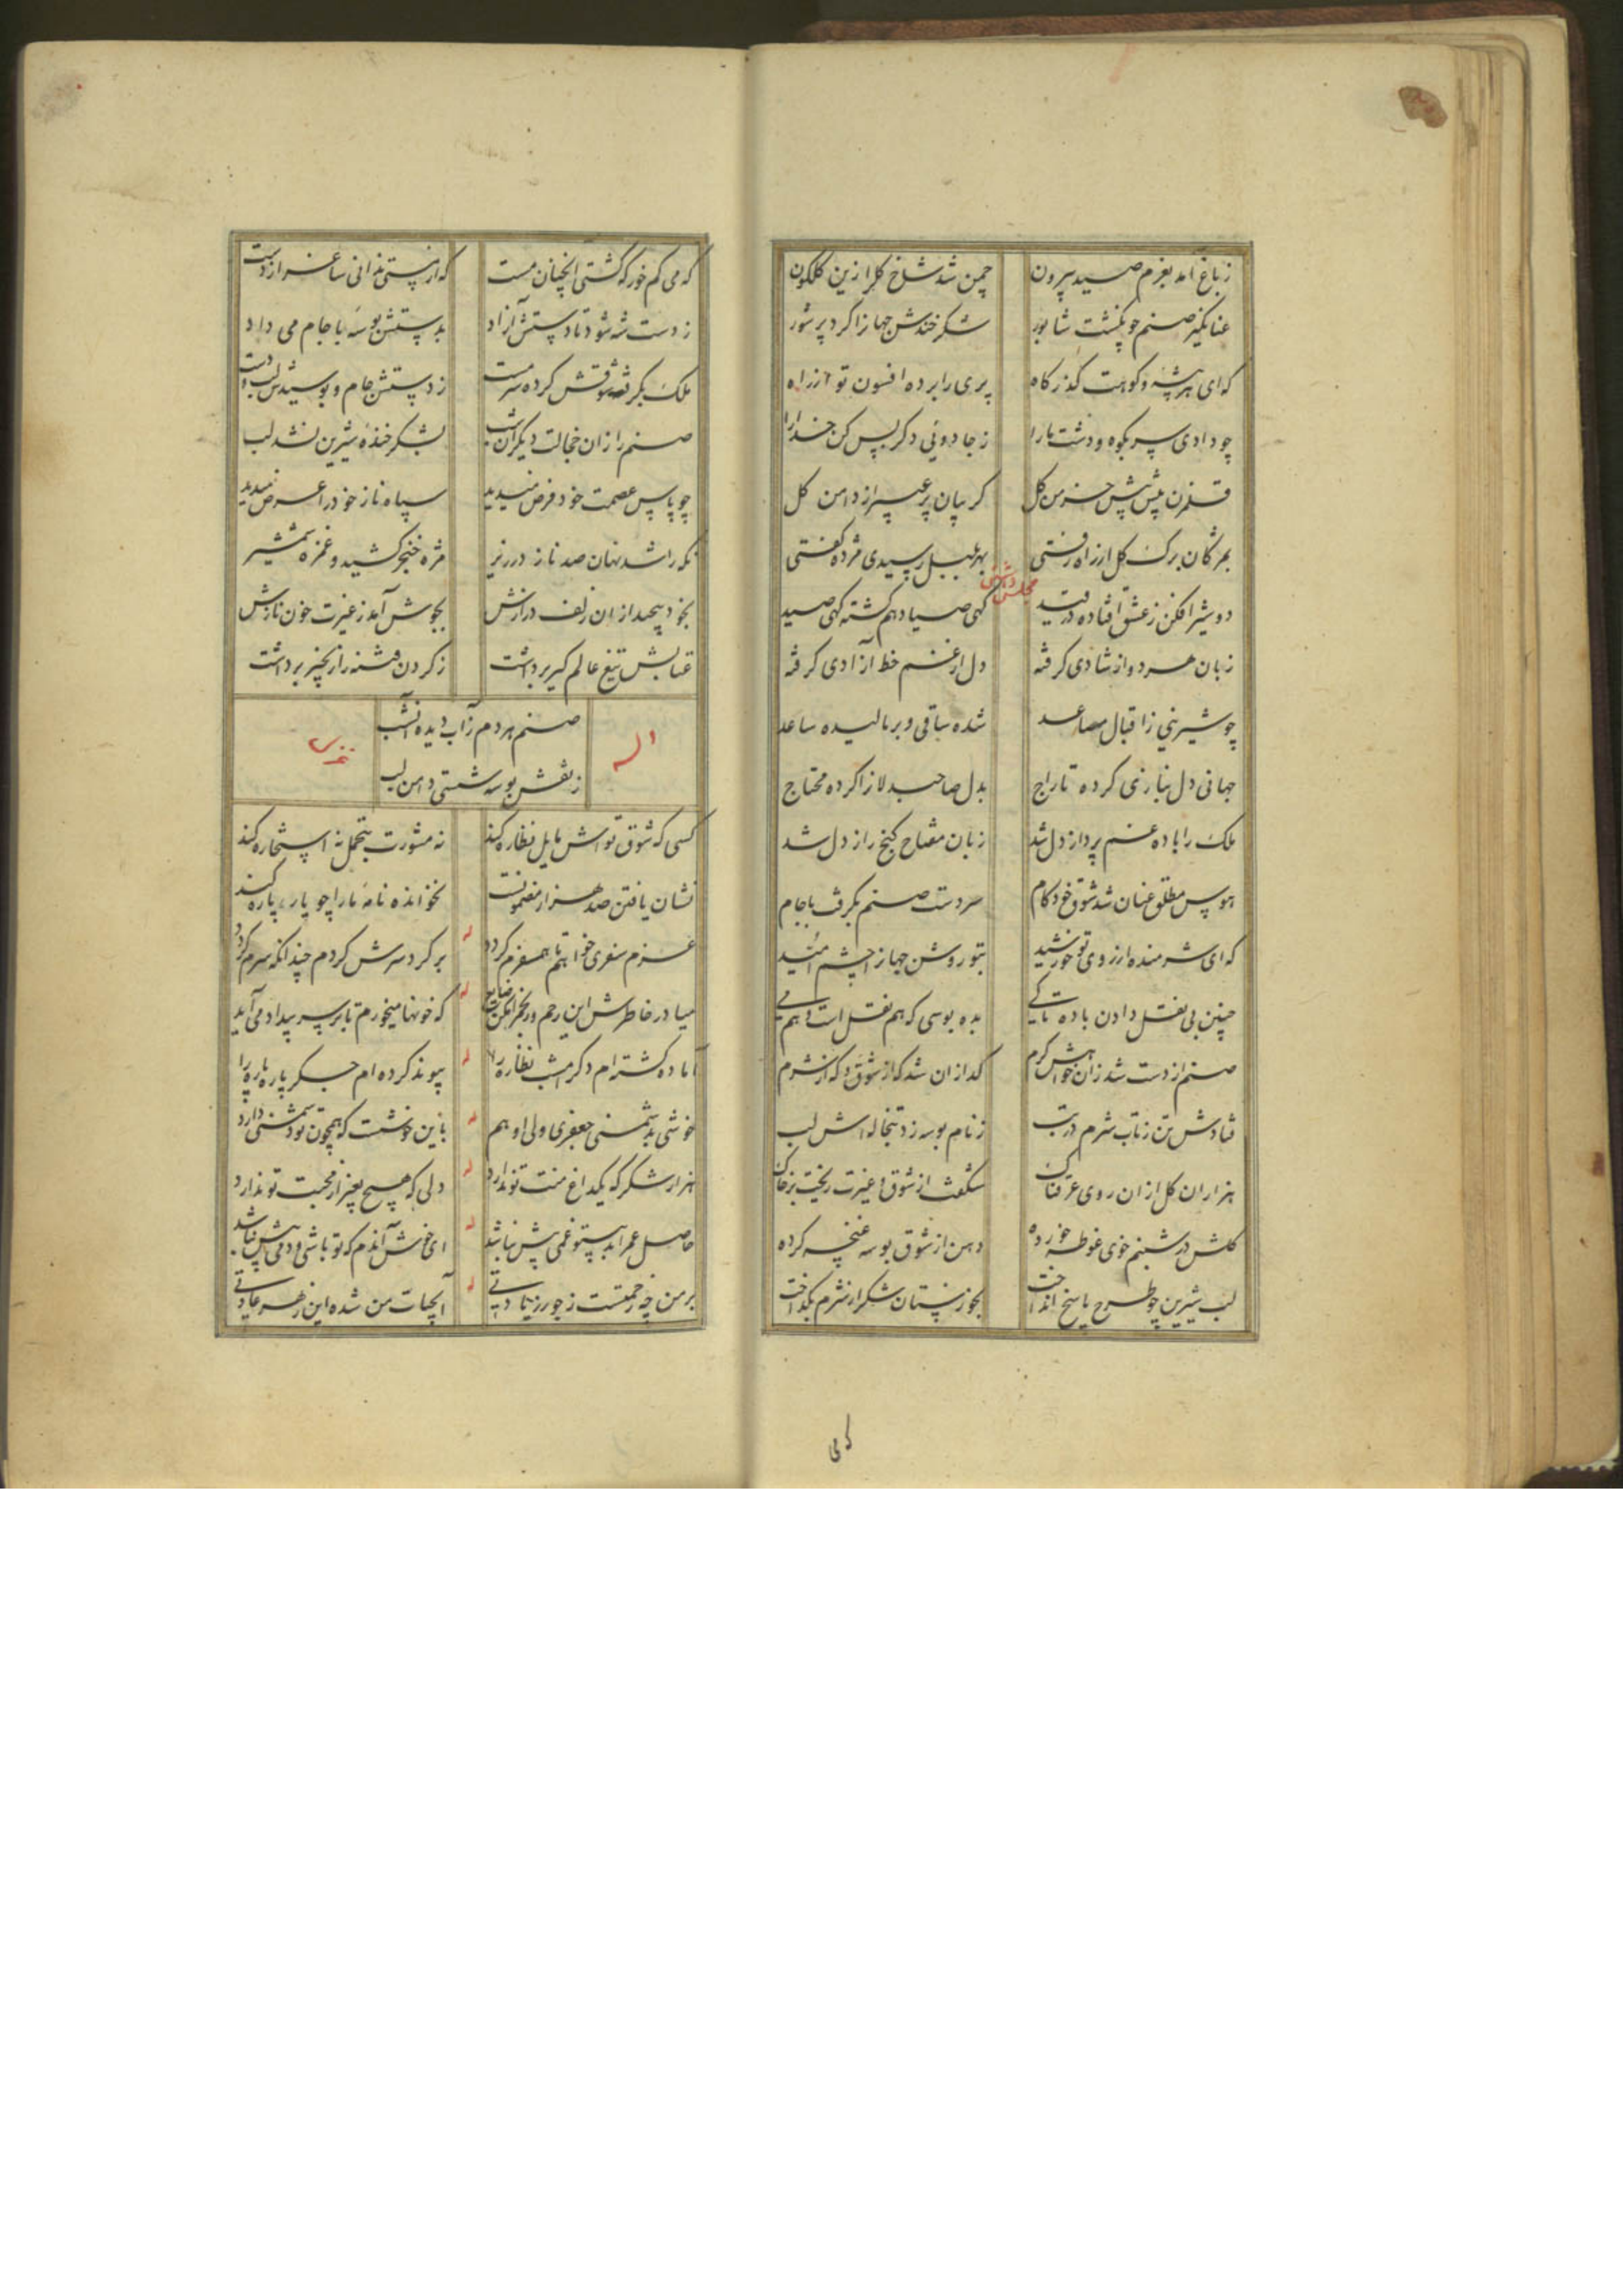 زباغ آمد بعزم صید بیرون چمن شد شاخ گل از زین گلگون
عنانگیر صنم چو نکشت شاپور شکر خندش جهانرا کرد پر شور
که ای هر پشه و کوهت گذرگاه پری را برده افسون تو از راه
چو دادی سر بکوه و دشت ما را ز جادوئی دگر بس کن خدا را
قلمزن پیش پیش خرمن گل گریبان پر عبیر از دامن گل
بمژگان برگ گل از راه رفتی بهر بلبل رسیدی مژده گفتی
مجلس
دو شیرافکن ز عشق افتاده در قید گهی صیاد هم گشته گهی صید
زبان هر دو از شادی گرفته دل از غم خط آزادی گرفته
چو شیرینی ز اقبال مصاعد شده ساقی و بر مالیده ساعد
جهانی دل بنازی کرده تاراج بدل صاحبدلانرا کرده محتاج
ملک را باده غم پرداز دل شد زبان مفتاح گنج راز دل شد
هوس مطلق عنان شد شوق خودکام سر دست صنم بگرفت با جام
که ای شرمنده از روی تو خورشید بتو روشن جهانرا چشم امید
چنین بی نقل دادن باده تا کی بده بوسی که هم نقل است و هم می
صنم از دست شد زان خواهش گرم گدازان شد که از شوق و که از شرم
فتادش تن ز تاب شرم در تب ز نام بوسه زد تبخاله اش لب
هزاران گل از ان روی عرقناک شگفت از شوق و غیرت ریخت بر خاک
گلش در شبنم خوی غوطه خورده دهن از شوق بوسه غنچه کرده
لب شیرین چو طرح پاسخ انداخت بجوز نیستان شکر از شرم بگداخت
که می کم خور که گشتی آنچنان مست که از پستی ندانی ساغر از دست
ز دست شه شود تا دستش آزاد بدستش بوسه با جام می داد
ملک بگرفت شوقش کرده سرمست ز دستش جام و بوسیدش لب و دست
صنم را زان خجالت دیگر آن شب بشکر خنده شیرین نشد لب
چو پاس عصمت خود فرض میدید سپاه ناز خود را عرض میدید
نگه را شد نهان صد ناز در زیر مژه خنجر کشید و غمزه شمشیر
بخود پیچید از ان زلف درازش بجوش آمد ز غیرت خون نازش
عتابش تیغ عالم گیر برداشت ز گردن فتنه را زنجیر برداشت
صنم هر دم ز آب دیده آن شب
ز نقش بوسه شستی دامن لب
کسی که شوق تو اش مایل نظاره کند نه مشورت بتحمل نه استخاره کند
نشان یافتن صد هزار مضمونست نخوانده نامه ما را چو یار پاره کند
عزم سفری خواهم تا همسفرم گردد بر گرد سرش گردم چندانکه سرم گردد
که خونها میخورم تا بر سر بیداد می آید
آماده گشته ام دگر امشب نظاره را پیوند کرده ام جگر پاره پاره را
خوشی بدشمنی جعفری ولی او هم باین خوشست که همچون تو دشمنی دارد
هزار شکر که یکداغ منت تو ندارد دلی که هیچ بغیر از محبت تو ندارد
حاصل عمر ابد بیتو غمی بیش نباشد ای خوش آندم که تو باشی و دمی بیش نباشد
بر من چه زحمتست ز جور زیادتی آبحیات من شده این زهر عادتی